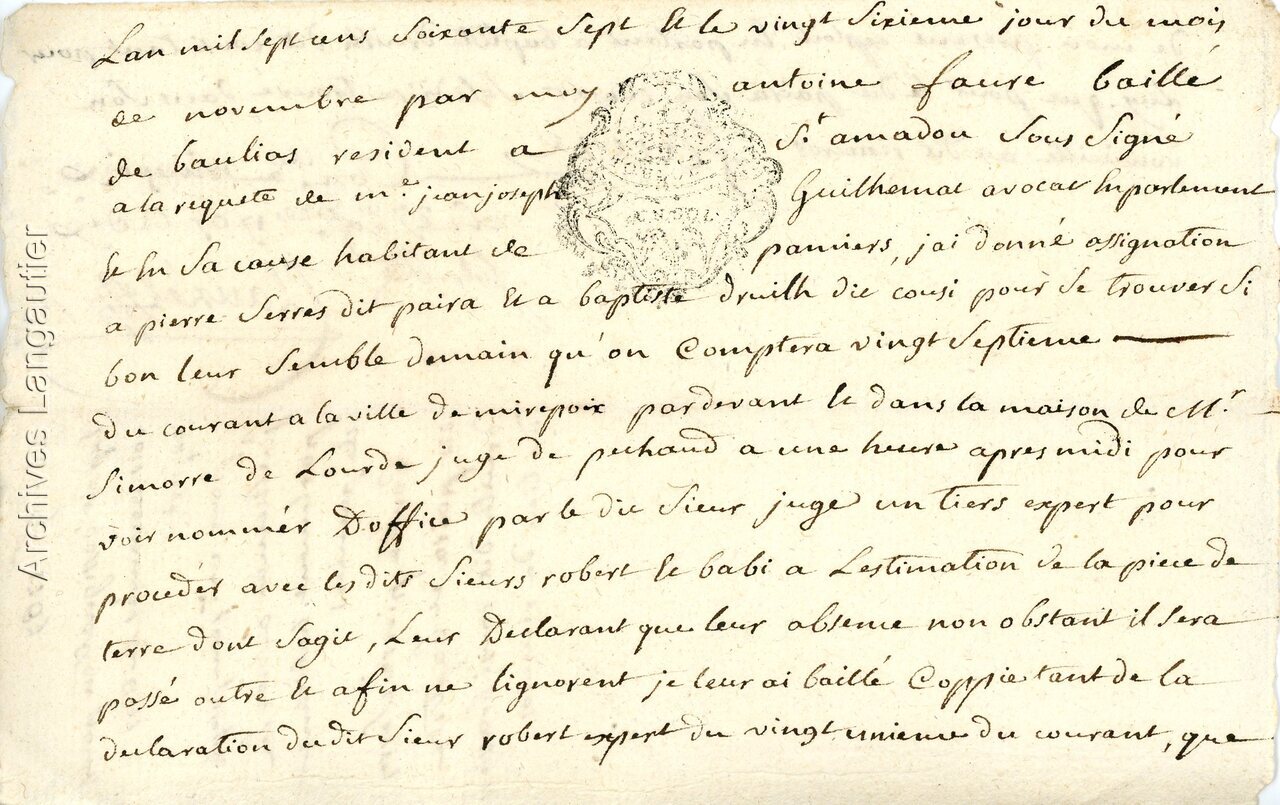 Lan mil sept cens soixante sept et le vingt sixieme jour du mois
de novembre par moy antoine faure baillé
de baulias resident a St amadou sous signé
a la requette de me jean joseph Guilhemat avocat en parlement
et en sa cause habitant de pamiers, jai donné assignation
a pierre serres dit paira et a baptiste druilh dit cousi pour se trouver si
bon leur semble demain qu'on Comptera vingt septieme
du courant a la ville de mirepoix pardevant et dans la maison de Mr
simorre de Lourde juge de pechaud a une heure apres midi pour
voir nommér Doffice par le dit sieur juge un tiers expert pour
procedér avec les dits sieurs robert et babi a Lestimation de la piece de
terre dont sagit, Leur Declarant que leur absence non obstant il sera
passé outre et afin ne lignorent je leur ai baillé Coppie tant de la
declaration du dit sieur robert expert du vingt unieme du courant, que
Archives Langautier